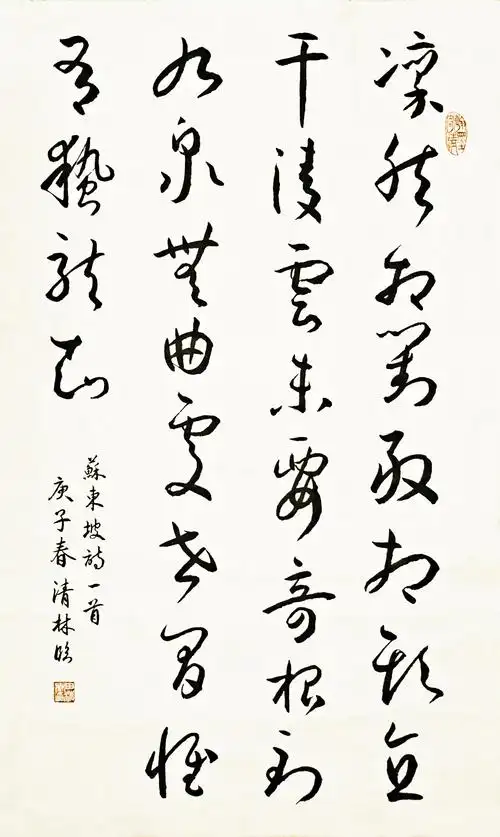 凜然相對敢相欺直
干凌雲未要奇根到
九泉無曲處世間惟
有蟄龍知
蘇東坡詩一首
庚子春清林臨